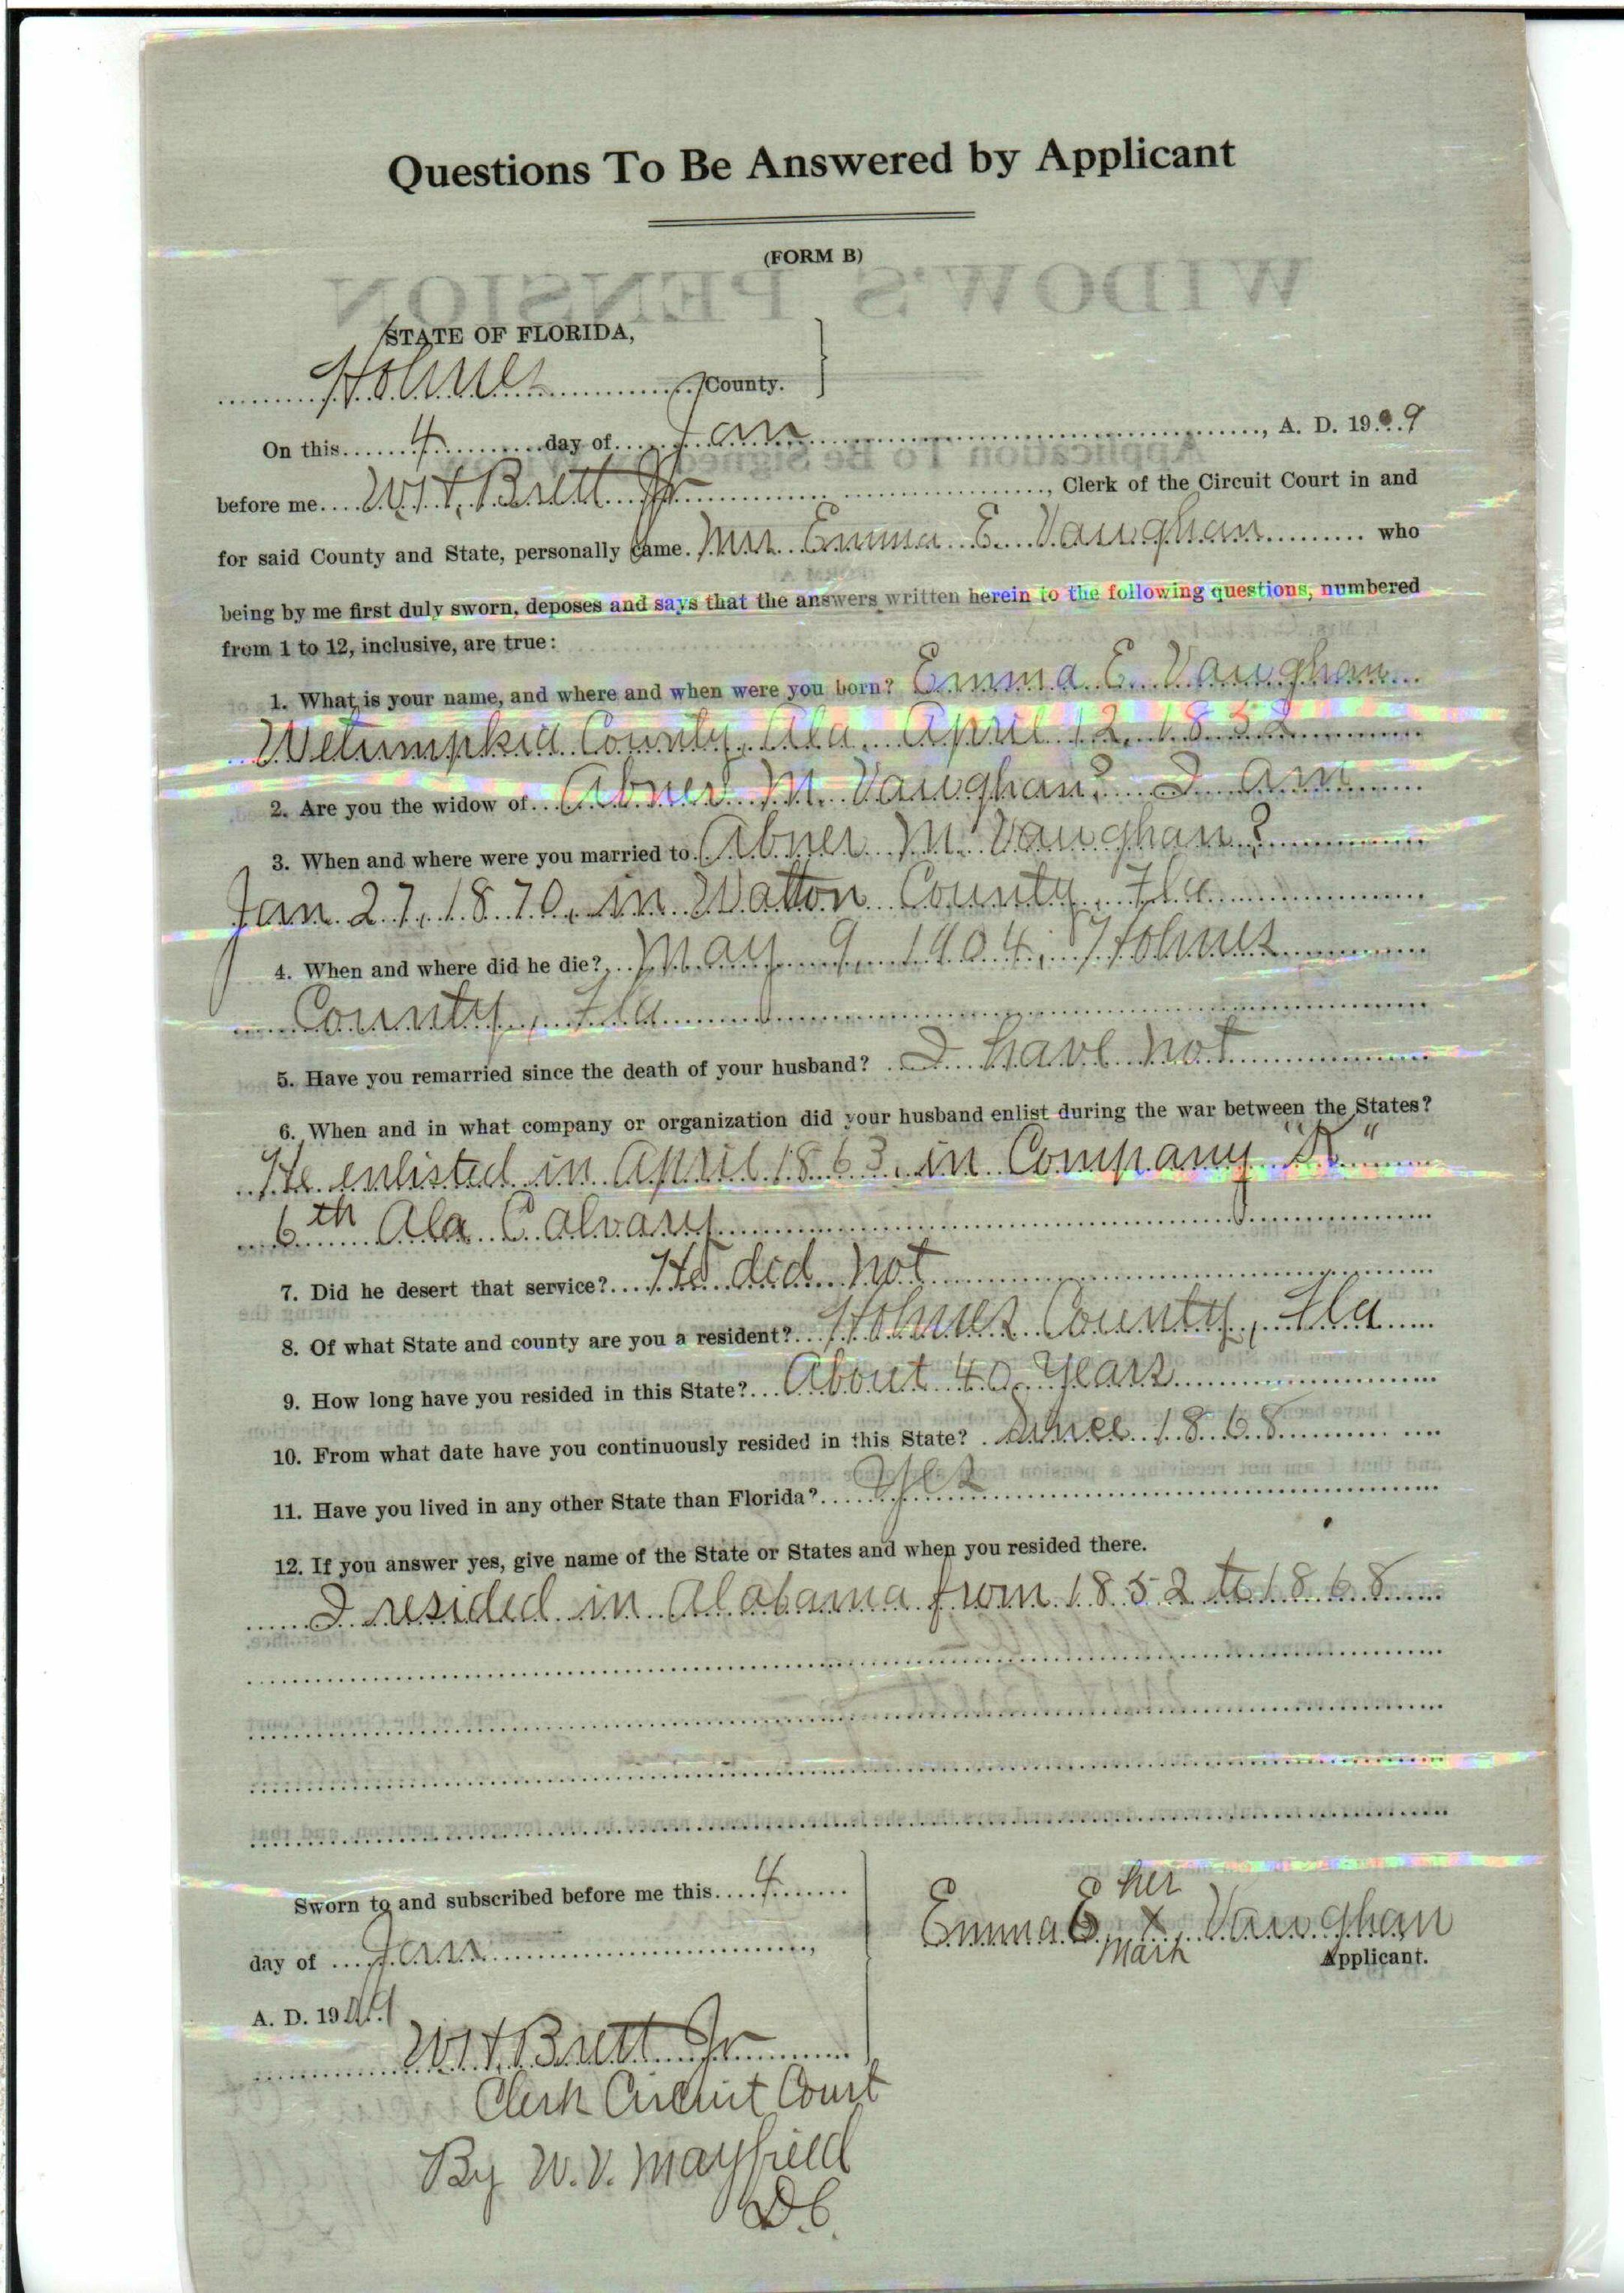 Questions To Be Answered by Applicant
(FORM B)
WIDOW'S PENSION
STATE OF FLORIDA,
Holmes County.
On this 4 day of Jan, A. D. 1909
before me W.H. Brett Jr, Clerk of the Circuit Court in and
for said County and State, personally came Mrs Emma E. Vaughan who
being by me first duly sworn, deposes and says that the answers written herein to the following questions, numbered
from 1 to 12, inclusive, are true:
1. What is your name, and where and when were you born? Emma E. Vaughan
Wetumpkia County, Ala. April 12, 1852
2. Are you the widow of Abner M. Vaughan? I am
3. When and where were you married to Abner M Vaughan?
Jan 27, 1870, in Walton County, Fla
4. When and where did he die? May 9, 1904, Holmes
County, Fla
5. Have you remarried since the death of your husband? I have not
6. When and in what company or organization did your husband enlist during the war between the States?
He enlisted in April 1863, in Company "K"
6th Ala Calvary
7. Did he desert that service? He did not
8. Of what State and county are you a resident? Holmes County, Fla
9. How long have you resided in this State? About 40 Years
10. From what date have you continuously resided in this State? Since 1868
11. Have you lived in any other State than Florida? Yes
12. If you answer yes, give name of the State or States and when you resided there.
I resided in Alabama from 1852 to 1868
Sworn to and subscribed before me this 4
day of Jan,
A. D. 1909
W.H. Brett Jr
Clerk Circuit Court
By W.V. Mayfield
D.C.
her
Emma E. x Vaughan
mark
Applicant.